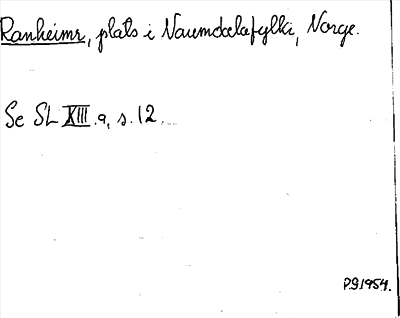 Ranheimr, plats i Naumdœlafylki, Norge.
Se SL XIII.a, s. 12.
P.S.1954.